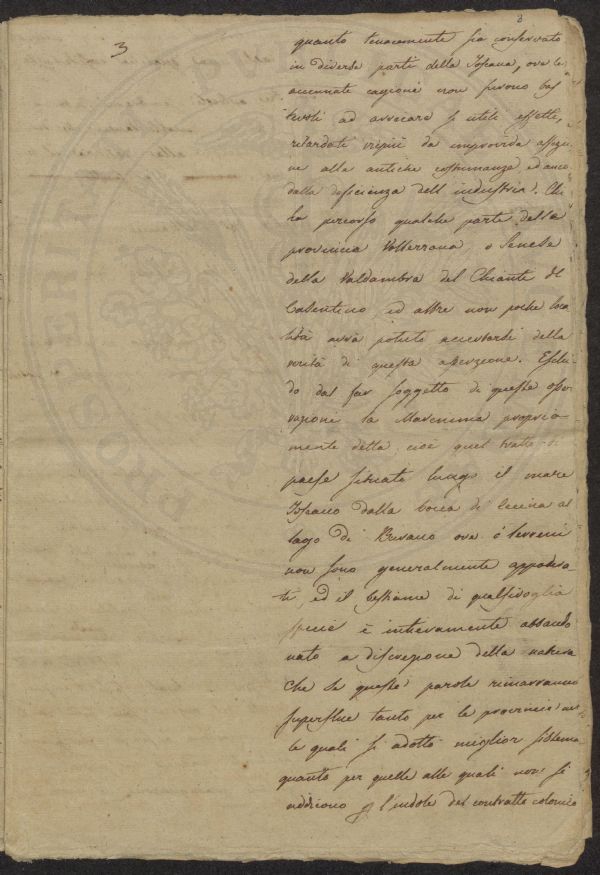 3
3
quanto tenacemente sia conservato
in diverse parti della Toscana, ove le
accennate cagioni non furono bas
tevoli ad arrecare sì utili effetti,
ritardati vepiù da improvida affezio
ne alle antiche costumanze, ed anco
dalla deficienza dell'industria. Chi
ha percorso qualche parte della
provincia Volterrana, o Senese
della Valdambra del Chianti di
Casentino ed altre non poche loca
lità avrà potuto accertarsi della
verità di questa asserzione. Esclu
do dal far soggetto di queste osser
vazioni la Maremma propria-
mente detta, cioè quel tratto di
paese situato lungo il mare
Toscano dalla bocca di Cecina al
lago di Burano ove i terreni
non sono generalmente appodera
ti, ed il bestiame di qualsivoglia
specie è intieramente abbando
nato a discrezione della natura
che se queste parole rimarranno
superflue tanto per le provincie nel
le quali si adottò miglior sistema
quanto per quelle alle quali non si
addicono l'indole del contratto colonico